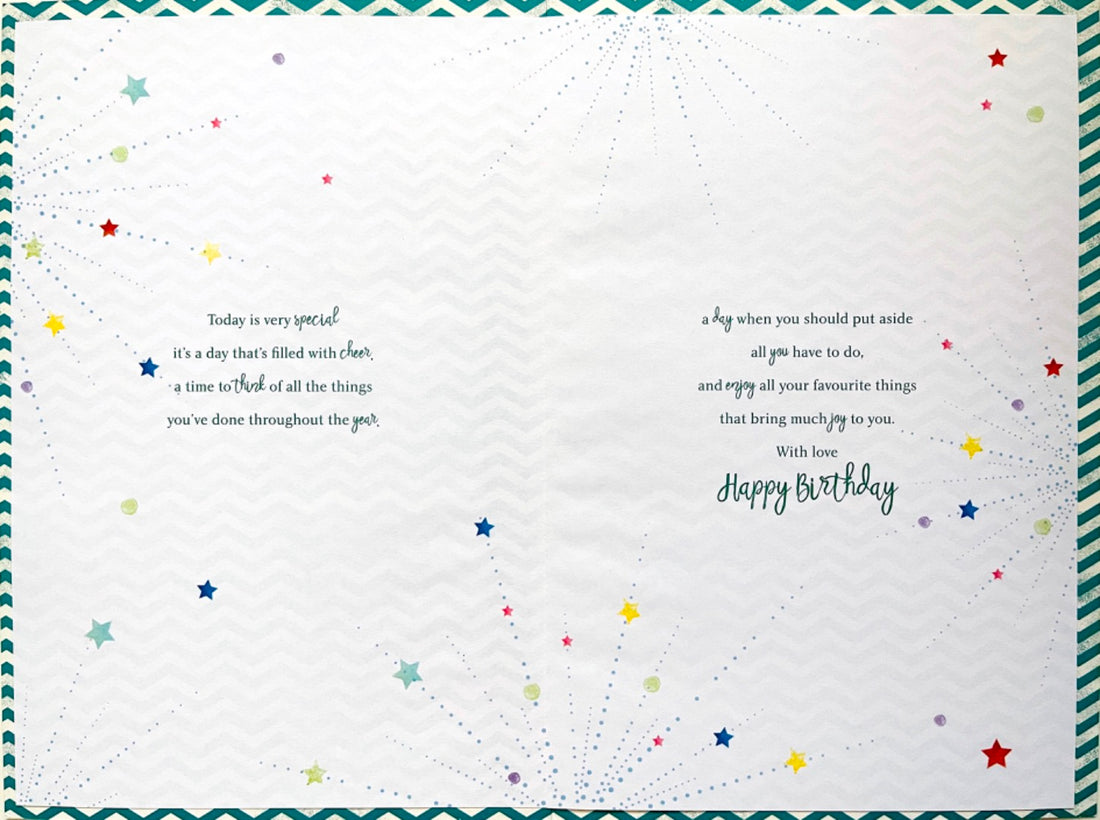 Today is very special
it's a day that's filled with cheer,
a time to think of all the things
you've done throughout the year,
a day when you should put aside
all you have to do,
and enjoy all your favourite things
that bring much joy to you.
With love
Happy Birthday